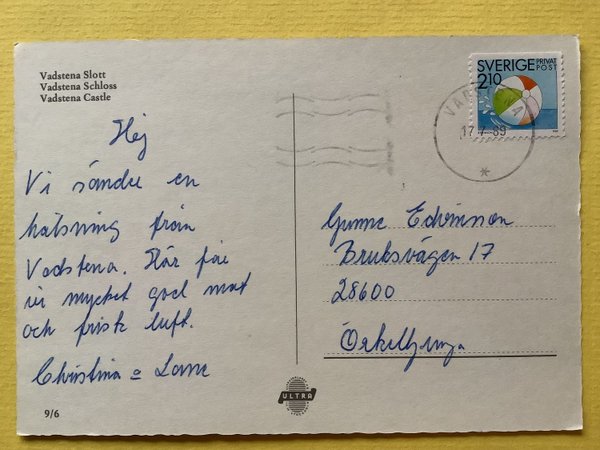 Vadstena Slott
Vadstena Schloss
Vadstena Castle
Hej
Vi sänder en
hälsning från
Vadstena. Här får
vi mycket god mat
och frisk luft.
Christina o
9/6
ULTRA
SVERIGE PRIVAT
POST
2.10
VADSTENA
17-7-89
Gunne Edvinsson
Bruksvägen 17
28600
Örkelljunga